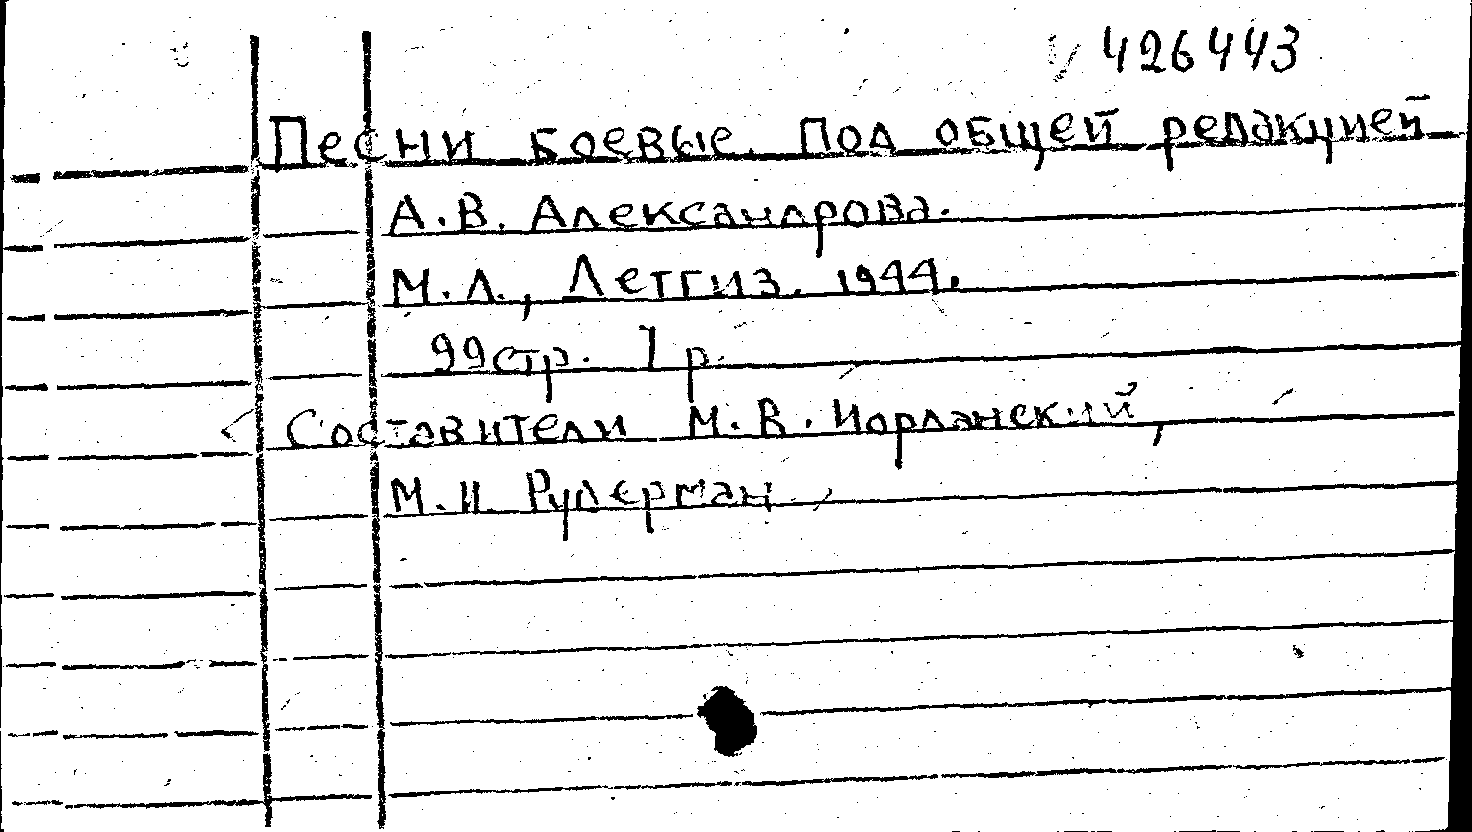 426443
Песни боевые. Под общей редакцией
А.В. Александрова.
М.Л., Детгиз. 1944.
99стр. 1 р.
Составители М.В. Иорданский,
М.И. Рудерман